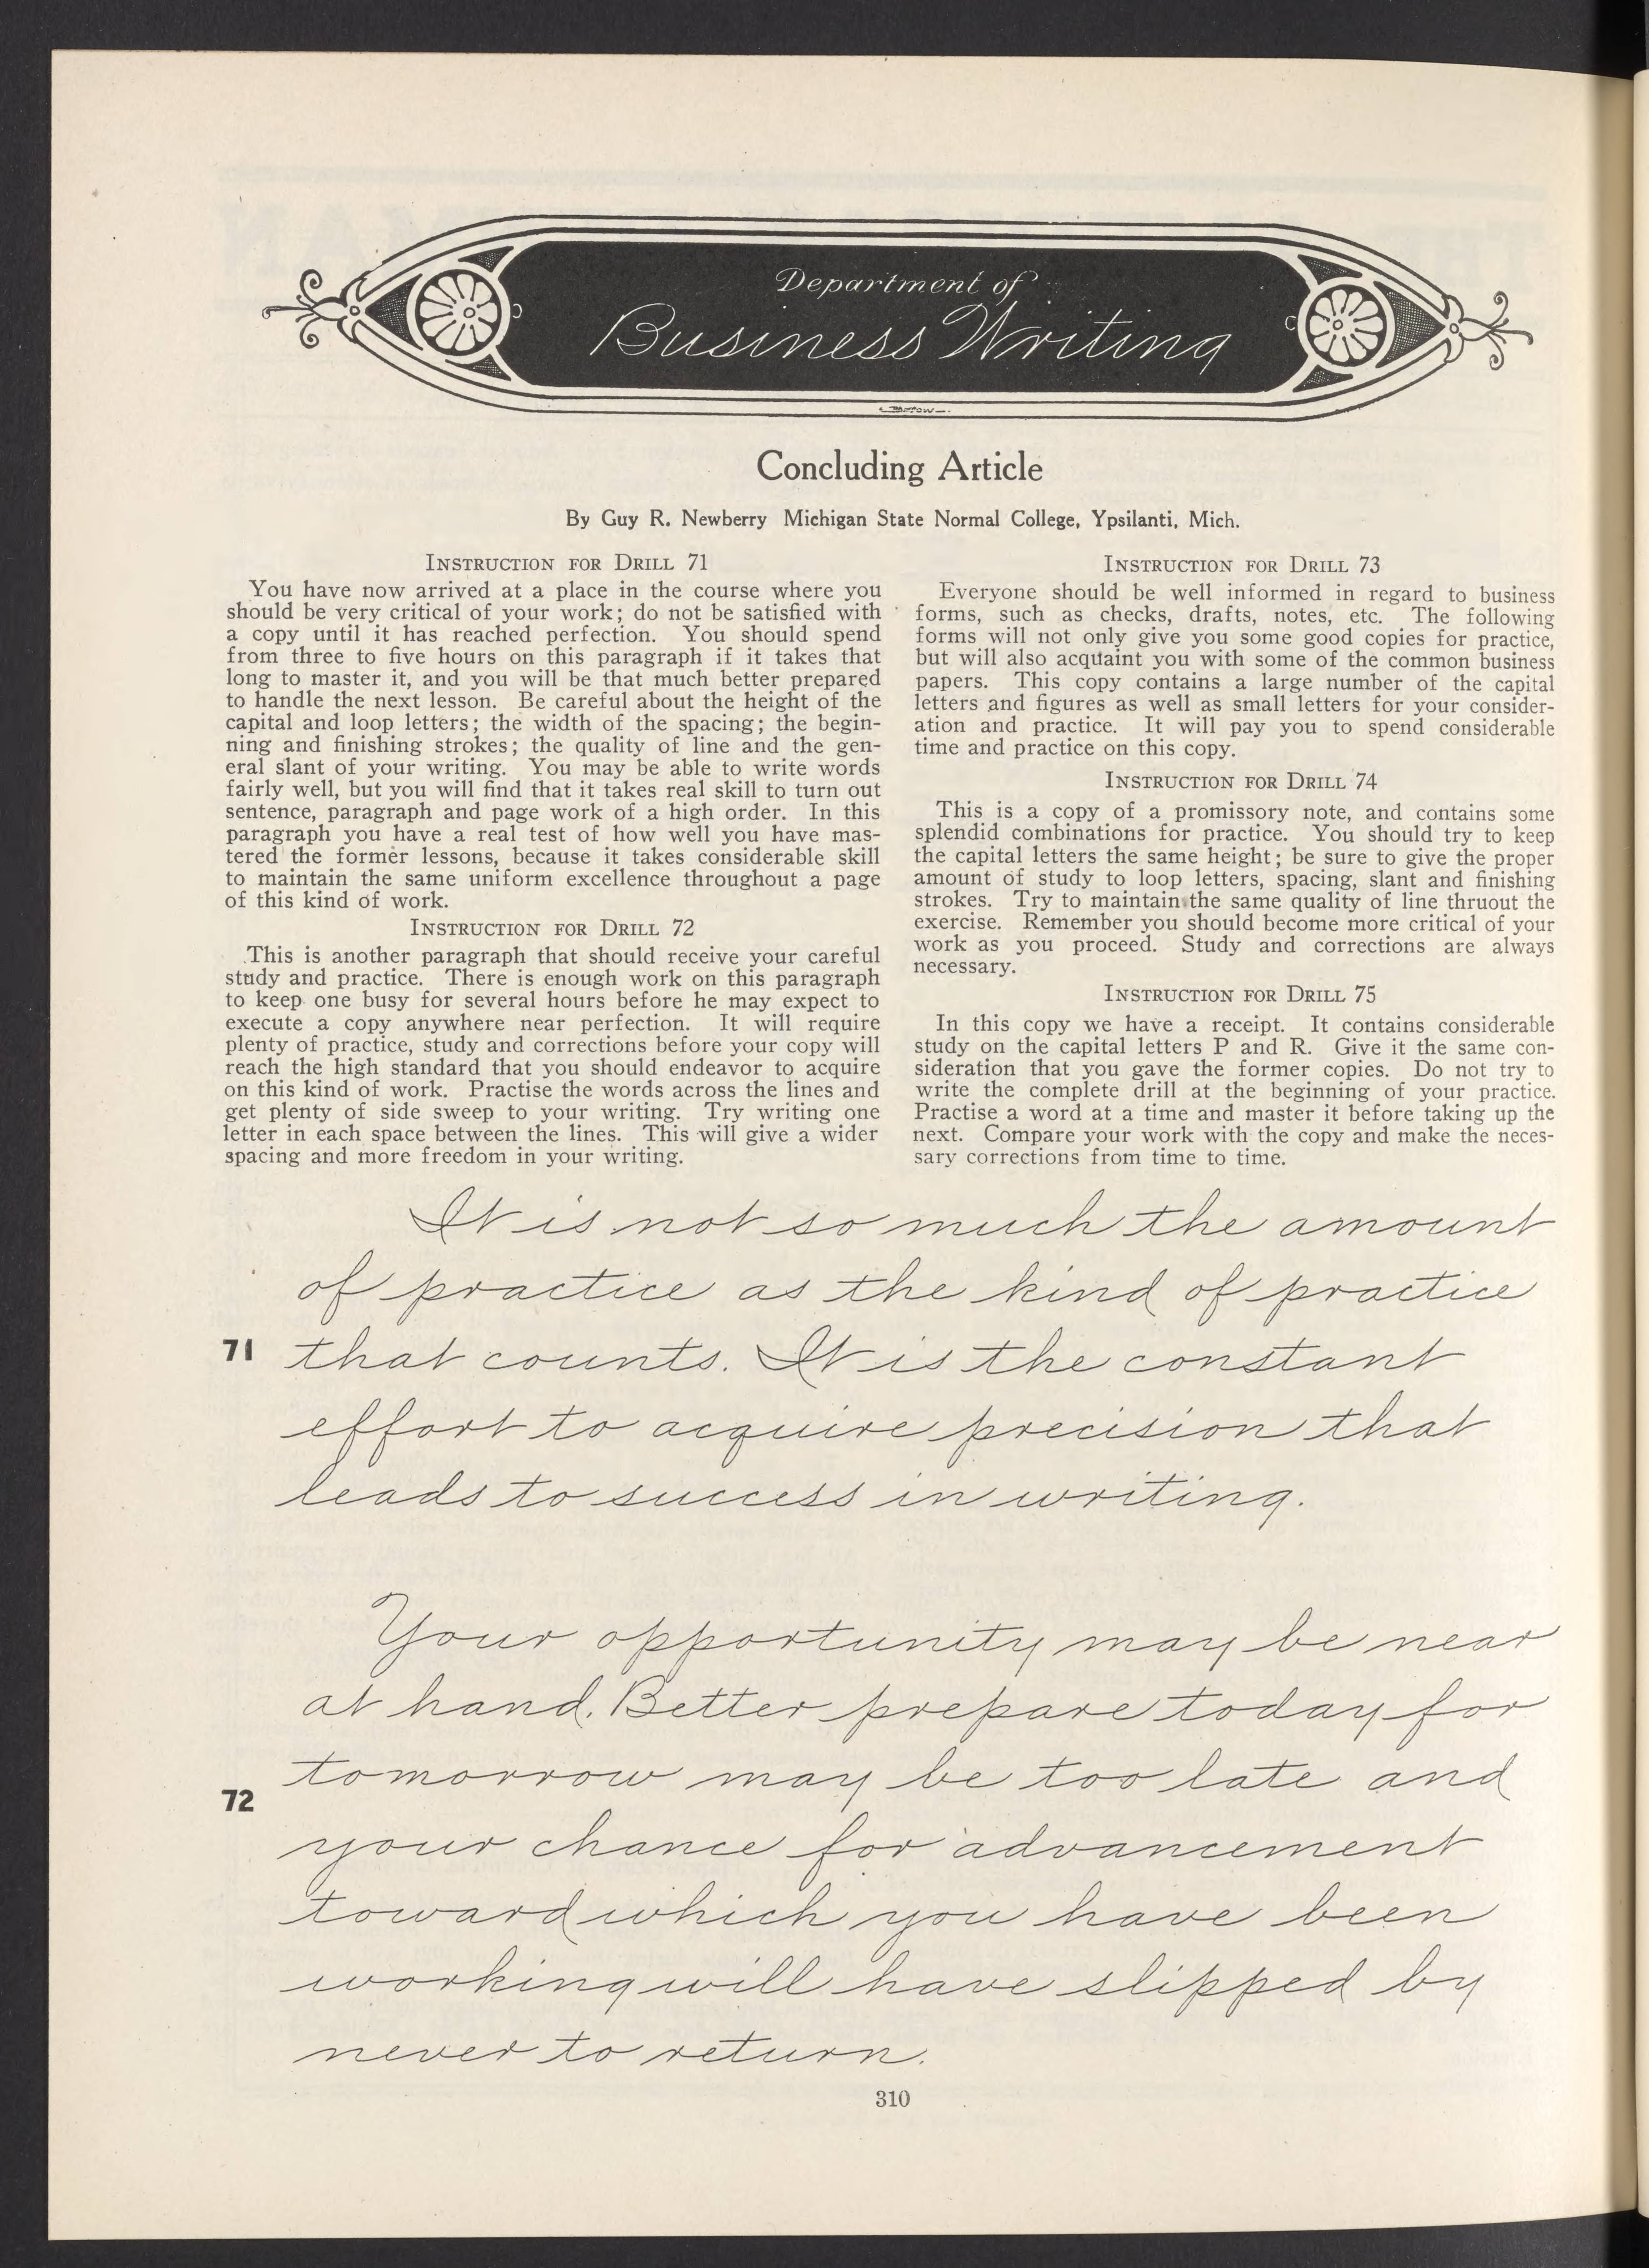 Department of
Business Writing
Concluding Article
By Guy R. Newberry Michigan State Normal College, Ypsilanti, Mich.
INSTRUCTION FOR DRILL 71
You have now arrived at a place in the course where you
should be very critical of your work; do not be satisfied with
a copy until it has reached perfection. You should spend
from three to five hours on this paragraph if it takes that
long to master it, and you will be that much better prepared
to handle the next lesson. Be careful about the height of the
capital and loop letters; the width of the spacing; the begin-
ning and finishing strokes; the quality of line and the gen-
eral slant of your writing. You may be able to write words
fairly well, but you will find that it takes real skill to turn out
sentence, paragraph and page work of a high order. In this
paragraph you have a real test of how well you have mas-
tered the former lessons, because it takes considerable skill
to maintain the same uniform excellence throughout a page
of this kind of work.
INSTRUCTION FOR DRILL 72
This is another paragraph that should receive your careful
study and practice. There is enough work on this paragraph
to keep one busy for several hours before he may expect to
execute a copy anywhere near perfection. It will require
plenty of practice, study and corrections before your copy will
reach the high standard that you should endeavor to acquire
on this kind of work. Practise the words across the lines and
get plenty of side sweep to your writing. Try writing one
letter in each space between the lines. This will give a wider
spacing and more freedom in your writing.
INSTRUCTION FOR DRILL 73
Everyone should be well informed in regard to business
forms, such as checks, drafts, notes, etc. The following
forms will not only give you some good copies for practice,
but will also acquaint you with some of the common business
papers. This copy contains a large number of the capital
letters and figures as well as small letters for your consider-
ation and practice. It will pay you to spend considerable
time and practice on this copy.
INSTRUCTION FOR DRILL 74
This is a copy of a promissory note, and contains some
splendid combinations for practice. You should try to keep
the capital letters the same height; be sure to give the proper
amount of study to loop letters, spacing, slant and finishing
strokes. Try to maintain the same quality of line thruout the
exercise. Remember you should become more critical of your
work as you proceed. Study and corrections are always
necessary.
INSTRUCTION FOR DRILL 75
In this copy we have a receipt. It contains considerable
study on the capital letters P and R. Give it the same con-
sideration that you gave the former copies. Do not try to
write the complete drill at the beginning of your practice.
Practise a word at a time and master it before taking up the
next. Compare your work with the copy and make the neces-
sary corrections from time to time.
It is not so much the amount
of practice as the kind of practice
71 that counts. It is the constant
effort to acquire precision that
leads to success in writing.
Your opportunity may be near
at hand. Better prepare today for
tomorrow may be too late and
72
your chance for advancement
toward which you have been
working will have slipped by
never to return.
310